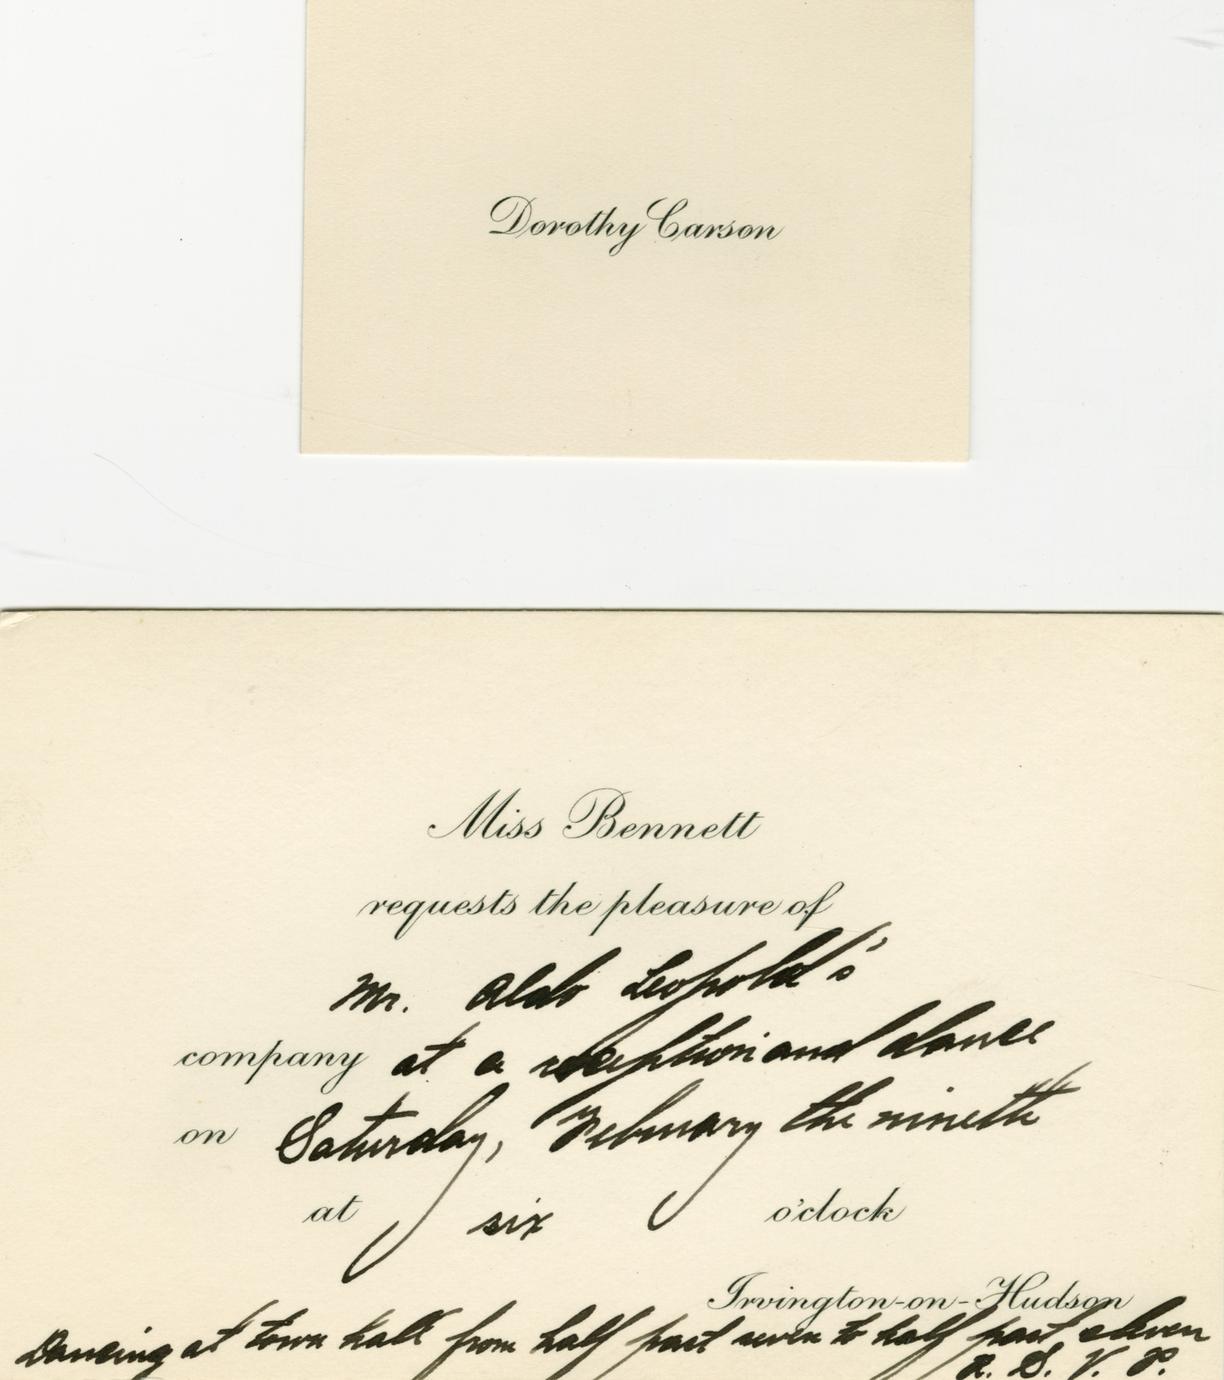 Dorothy Carson
Miss Bennett
requests the pleasure of
Mr. Aldo Leopold's
company at a reception and dance
on Saturday, February the nineth
at six o'clock
Irvington-on-Hudson
Dancing at town hall from half past seven to half past eleven
R. S. V. P.